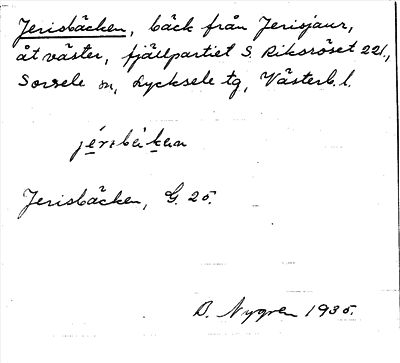 Jerisbäcken, bäck från Jerisjaur,
åt väster, fjällpartiet S. Riksröset 221,
Sorsele sn, Lycksele tg, Västerb. l.
Jerisbäcken, G. 25.
D. Nygren 1935.